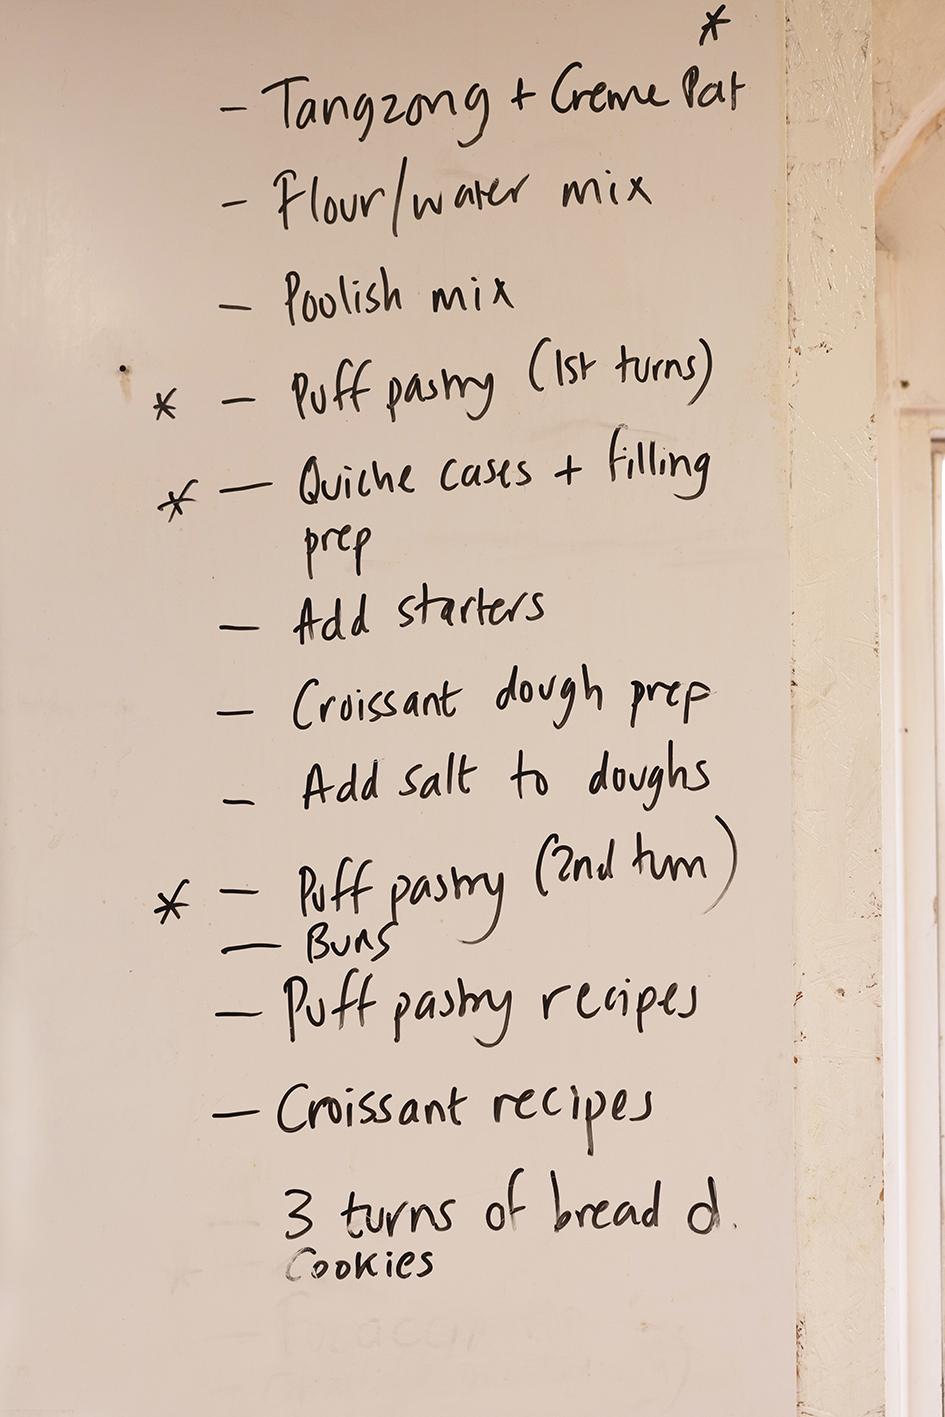 *
- Tangzong + Creme Pat
- Flour/water mix
- Poolish mix
* - Puff pastry (1st turns)
* - Quiche cases + filling
prep
- Add starters
- Croissant dough prep
- Add salt to doughs
* - Puff pastry (2nd turn)
- Buns
- Puff pastry recipes
- Croissant recipes
3 turns of bread d.
Cookies